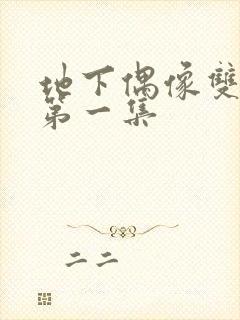 地下偶像雙
第一集
二二